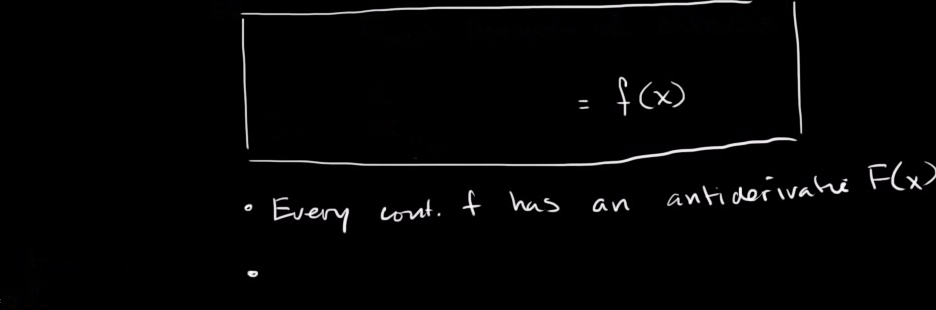 = f(x)
• Every cont. f has an antiderivative F(x)
•